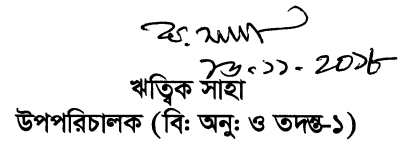 ২৩.১১.২০১৮
ঋত্বিক সাহা
উপপরিচালক (বিঃ অনুঃ ও তদন্ত-১)